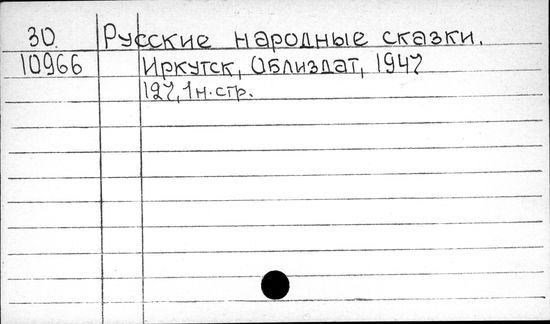 30. Русские народные сказки.
10966 Иркутск, Облиздат, 1947
127, 1 н. стр.